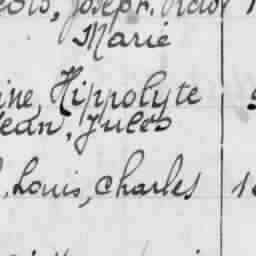 Joseph, Victor
Marie
ine, Hippolyte
Jean, Jules
Louis, Charles